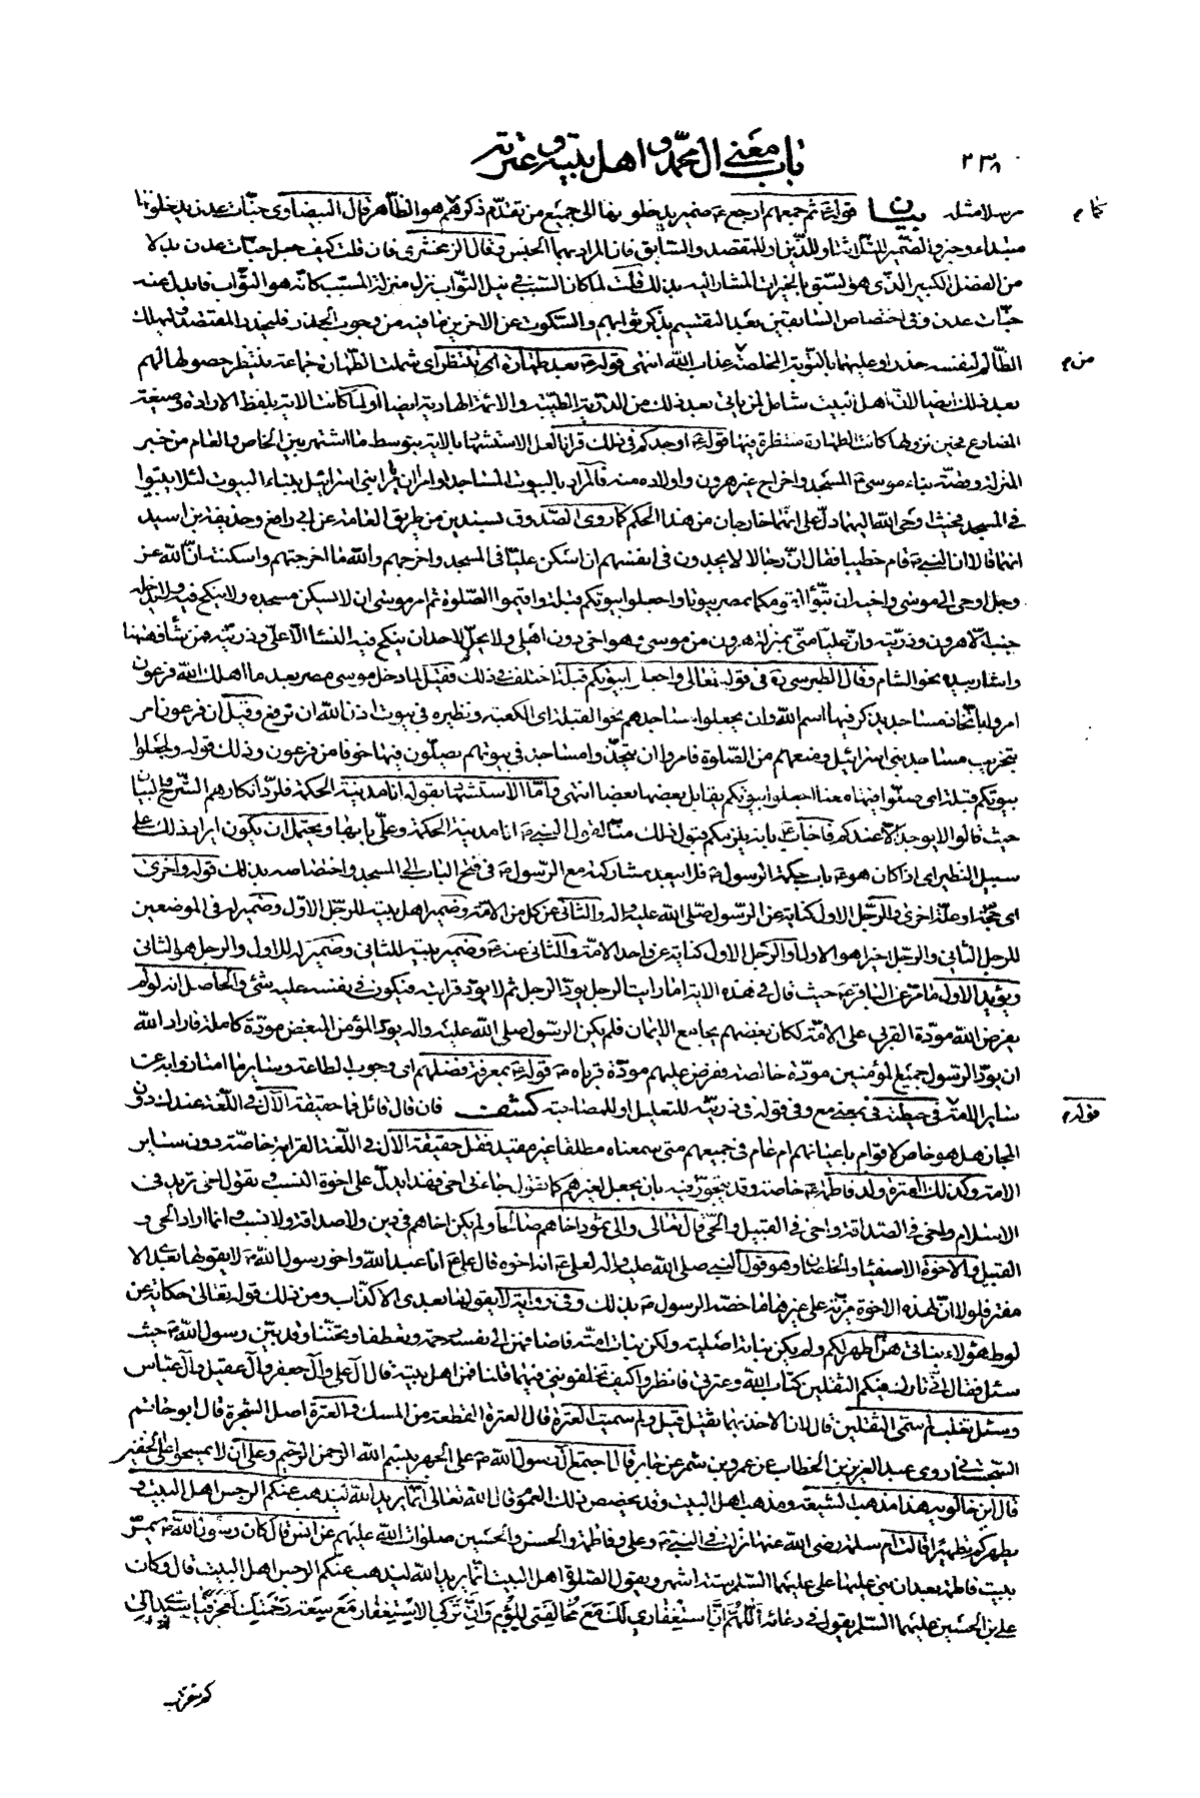 ٢٣٨
باب معنى آل محمد و اهل بيته و عترته
مرسلا مثله بيان قوله ثم جمعهم ارجع ضمير يدخلونها الى جميع من تقدم ذكرهم هو الظاهر قال البيضاوى جنات عدن يدخلونها
مبتداء وخبر والضمير للثلاثة او للذين او للمقتصد والسابق فان المراد بهما الجنس وقال الزمخشرى فان قلت كيف جعل جنات عدن بدلا
من الفضل الكبير الذى هو السبق بالخيرات المشار اليه بذلك قلت لما كان السبب فى نيل الثواب نزل منزلة المسبب كانه هو الثواب فابدل عنه
جنات عدن وفى اختصاص السابقين بعد التقسيم بذكر ثوابهم والسكوت عن الاخرين ما فيه من وجوب الحذر فليحذر المقتصد وليملك
الظالم لنفسه حذرا وعليهما بالتوبة المخلصة عذاب الله انتهى قوله بعد طهارة تنتظر اى شملت الطهارة جماعة ينتظر حصولها لهم
بعد ذلك ايضا لان اهل البيت شامل لمن ياتى بعد ذلك من الذرية الطيبة والائمة الهادية ايضا او لما كانت الاية بلفظ الارادة وصيغة
المضارع فحين نزولها كانت الطهارة منتظرة فيها قوله اوجدكم فى ذلك قرانا لعل الاستشهاد بالاية بتوسط ما اشتهر بين الخاص والعام من خبر
المنزلة وقصة بناء موسى المسجد واخراج غير هرون واولاده منه فالمراد بالبيوت المساجد او امر ان يامرا بنى اسرائيل ببناء البيوت لئلا يبيتوا
فى المسجد فحيث اوحى الله اليهما دل على انهما خارجان من هذا الحكم كما روى الصدوق بسندين من طريق العامة عن ابى رافع وحذيفة بن اسيد
انهما قالا ان النبى قام خطيبا فقال ان رجالا لا يجدون فى انفسهم ان اسكن عليا فى المسجد واخرجهم والله ما اخرجتهم واسكنته ان الله عز
وجل اوحى الى موسى واخيه ان تبوا لقومكما بمصر بيوتا واجعلوا بيوتكم قبلة واقيموا الصلوة ثم امر موسى ان لا يسكن مسجده ولا ينكح فيه ولا يدخله
جنب الا هرون وذريته وان عليا منى بمنزلة هرون من موسى وهو اخى دون اهلى ولا يحل لاحد ان ينكح فيه النساء الا على وذريته فمن شاء فههنا
واشار بيده نحو الشام وقال الطبرسى فى قوله تعالى واجعلوا بيوتكم قبلة اختلف فى ذلك فقيل لما دخل موسى مصر بعد ما اهلك الله فرعون
امروا باتخاذ مساجد يذكر فيها اسم الله وان يجعلوا مساجدهم نحو القبلة اى الكعبة ونظيره فى بيوت اذن الله ان ترفع وقيل ان فرعون امر
بتخريب مساجد بنى اسرائيل ومنعهم من الصلوة فامروا ان يتخذوا مساجد فى بيوتهم يصلون فيها خوفا من فرعون وذلك قوله واجعلوا
بيوتكم قبلة اى صلوا فيها معنا اجعلوا بيوتكم يقابل بعضها بعضا انتهى واما الاستشهاد بقوله انا مدينة الحكمة فلرد انكارهم الشرح والبيان
حيث قالوا لا يوجد الا عندكم فاجاب بانه يلزمكم قبول ذلك منا لقول النبى انا مدينة الحكمة وعلى بابها ويحتمل ان يكون ايراد ذلك على
سبيل النظير اى اذا كان هو باب حكمة الرسول فلا يبعد مشاركته مع الرسول فى فتح الباب الى المسجد واختصاصه بذلك قوله واخرى
اى حجة او علة اخرى والرجل الاول كناية عن الرسول صلى الله عليه واله والثانى عن كل من الامة وضمير اهل بيته للرجل الاول وضمير له فى الموضعين
للرجل الثانى والرجل اخيرا هو الاول او الرجل الاول كناية عن واحد الامة والثانى عنه وضمير بيته للثانى وضمير له للاول والرجل هو الثانى
ويؤيد الاول ما مر عن الباقر حيث قال فى هذه الاية اما رايت الرجل يود الرجل ثم لا يود قرابته فيكون فى نفسه عليه شىء والحاصل انه لو لم
يفرض الله مودة القربى على الامة لكان بغضهم يجامع الايمان فلم يكن الرسول صلى الله عليه واله يود المؤمن المبغض مودة كاملة فاراد الله
ان يود الرسول جميع المؤمنين مودة خالصة ففرض عليهم مودة قرباه قوله بمعرفة فضلهم اى وجوب الطاعة وساير ما امتازوا به عن
ساير الامة فى حيطته فى بمعنى مع وفى قوله فى ذريته للتعليل او للمصاحبة كشف فان قال قائل فما حقيقة الآل فى اللغة عندك دون
المجاز هل هو خاص لاقوام باعيانهم ام عام فى جميعهم متى سمعناه مطلقا غير مقيد فقل حقيقة الآل فى اللغة القرابة خاصة دون ساير
الامة وكذلك العترة ولد فاطمة خاصة وقد يتجوز فيه بان يجعل لغيرهم كما تقول جاءنى اخى فهذا يدل على اخوة النسب وتقول اخى تريد فى
الاسلام واخى فى الصداقة واخى فى القبيل والحى قال تعالى والى ثمود اخاهم صالحا ولم يكن اخاهم فى دين ولا صداقة ولا نسب وانما اراد الحى و
القبيل والاخوة الاصفياء والخلصان وهو قول النبى صلى الله عليه واله لعلى انه اخوه قال على انا عبد الله واخو رسول الله لا يقولها بعدى الا
مفتر فلولا ان لهذه الاخوة مزية على غيرها ما خصه الرسول بذلك وفى رواية لا يقولها بعدى الا كذاب ومن ذلك قوله تعالى حكاية عن
لوط هؤلاء بناتى هن اطهر لكم ولم يكن بناته لصلبه ولكن بنات امته فاضافهن الى نفسه رحمة وتعطفا وتحننا وقد بين رسول الله حيث
سئل فقال انى تارك فيكم الثقلين كتاب الله وعترتى فانظروا كيف تخلفونى فيهما قلنا فمن اهل بيته قال آل على وآل جعفر وآل عقيل وآل عباس
وسئل ثعلب لم سمى الثقلين قال لان الاخذ بهما ثقيل قيل ولم سميت العترة قال العترة القطعة من المسك والعترة اصل الشجرة قال ابو حاتم
السجستانى روى عبد العزيز بن الخطاب عن عمرو بن شمر عن جابر قال اجتمع آل رسول الله على الجهر ببسم الله الرحمن الرحيم وعلى ان لا يمسحوا على الخفين
قال ابن خالويه هذا مذهب الشيعة ومذهب اهل البيت وقد يخصص ذلك العموم قال الله تعالى انما يريد الله ليذهب عنكم الرجس اهل البيت و
يطهركم تطهيرا قالت ام سلمة رضى الله عنها نزلت فى النبى وعلى وفاطمة والحسن والحسين صلوات الله عليهم عن انس قال كان رسول الله يمر
ببيت فاطمة بعد ان بنى عليها على عليهما السلام ستة اشهر ويقول الصلوة اهل البيت انما يريد الله ليذهب عنكم الرجس اهل البيت قال وكان
على بن الحسين عليهما السلام يقول فى دعائه اللهم ان استغفارى لك مع مخالفتى للؤم وان تركى الاستغفار مع سعة رحمتك لعجز فيا سيدى الى
قوله
كم تتقرب